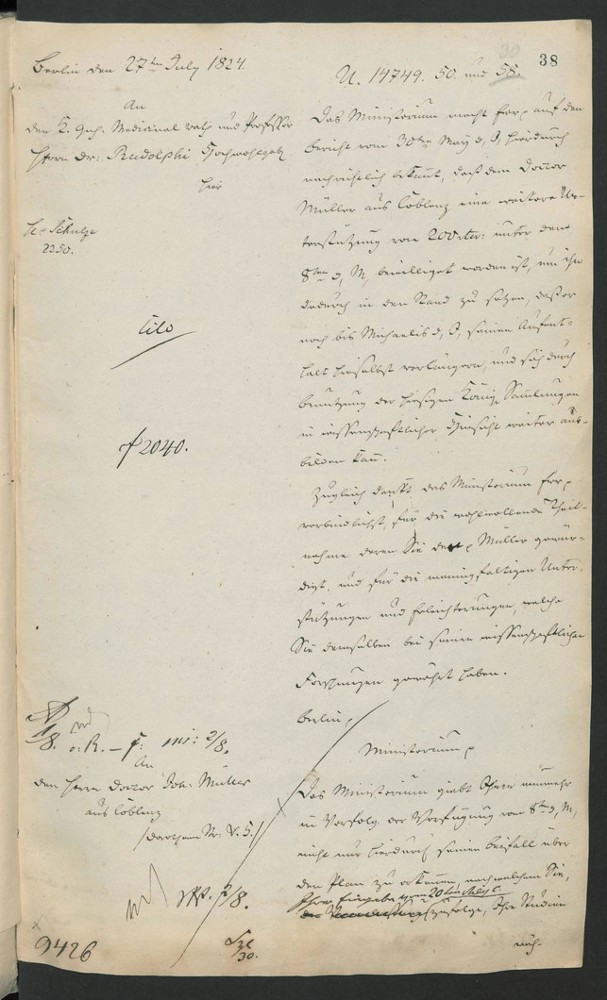 38
30
Berlin den 27ten July 1824.
U. 14749. 50. und 58.
An
den K. Geh. Medicinal rath und Professor
Herrn Dr: Rudolphi Hochwohlgeb
hier
H. Schulze
2250.
Cito
f 2040.
Das Ministerium macht auf den
Bericht vom 30ten May d. J. hierdurch
nachrichtlich bekannt, daß dem Doctor
Müller aus Coblenz eine weitere Un-
terstützung von 200 rtlr: unter dem
8ten d. M. bewilliget worden ist, um ihn
dadurch in den Stand zu setzen, daß er
noch bis Michaelis d. J. seinen Aufent-
halt hieselbst verlängern, und sich durch
Benutzung der hiesigen König. Samlungen
in wissenschaftlicher Hinsicht weiter aus-
bilden kann.
Zugleich dankt das Ministerium
verbindlichst, für die wohlwollende Theil-
nahme deren Sie den Müller gewür-
digt, und für die mannigfaltigen Unter-
stützungen und Erleichterungen, welche
Sie demselben bei seinen wissenschaftlichen
Forschungen gewährt haben.
Berlin
Ministerium
An
den Herrn Doctor Joh: Müller
aus Coblenz
Das Ministerium giebt Ihnen nunmehr
in Verfolg der Verfügung vom 8ten d. M.
nicht nur hierdurch seinen Beifall über
den Plan zu erkennen, nach welchem Sie,
Ihrer Eingabe vom 20ten
zufolge, Ihre Studien
2/8.
9426